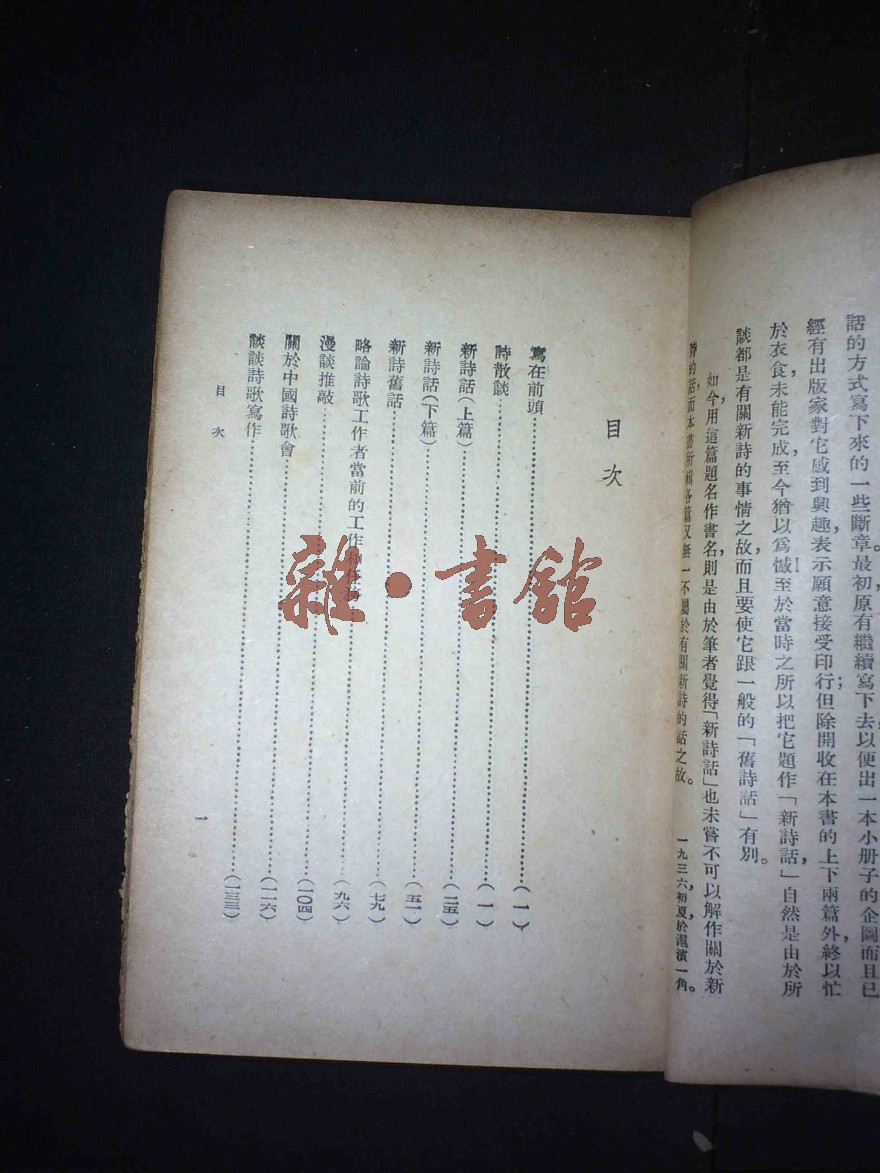 話的方式寫下來的一些斷章。最初，原有繼續寫下去以便出一本小册子的企圖而且已
經有出版家對它感到興趣，表示願意接受印行；但除開收在本書的上下兩篇外，終以忙
於衣食，未能完成，至今猶以爲憾。至於當時之所以把它題作「新詩話，」自然是由於所
談都是有關新詩的事情之故，而且要使它跟一般的「舊詩話」有別。
如今，用這篇題名作書名，則是由於筆者覺得「新詩話」也未嘗不可以解作關於新
詩的話而本書所輯各篇又無一不屬於有關新詩的話之故。
一九三六，初夏，於滬濱一角。
目次
寫在前頭……(一)
詩散談……(一)
新詩話(上篇)……(二五)
新詩話(下篇)……(五一)
新詩舊話……(七九)
略論詩歌工作者當前的工作……(九六)
漫談推敲……(一〇四)
關於中國詩歌會……(一一六)
談談詩歌寫作……(一三三)
目次
一
雜·書館